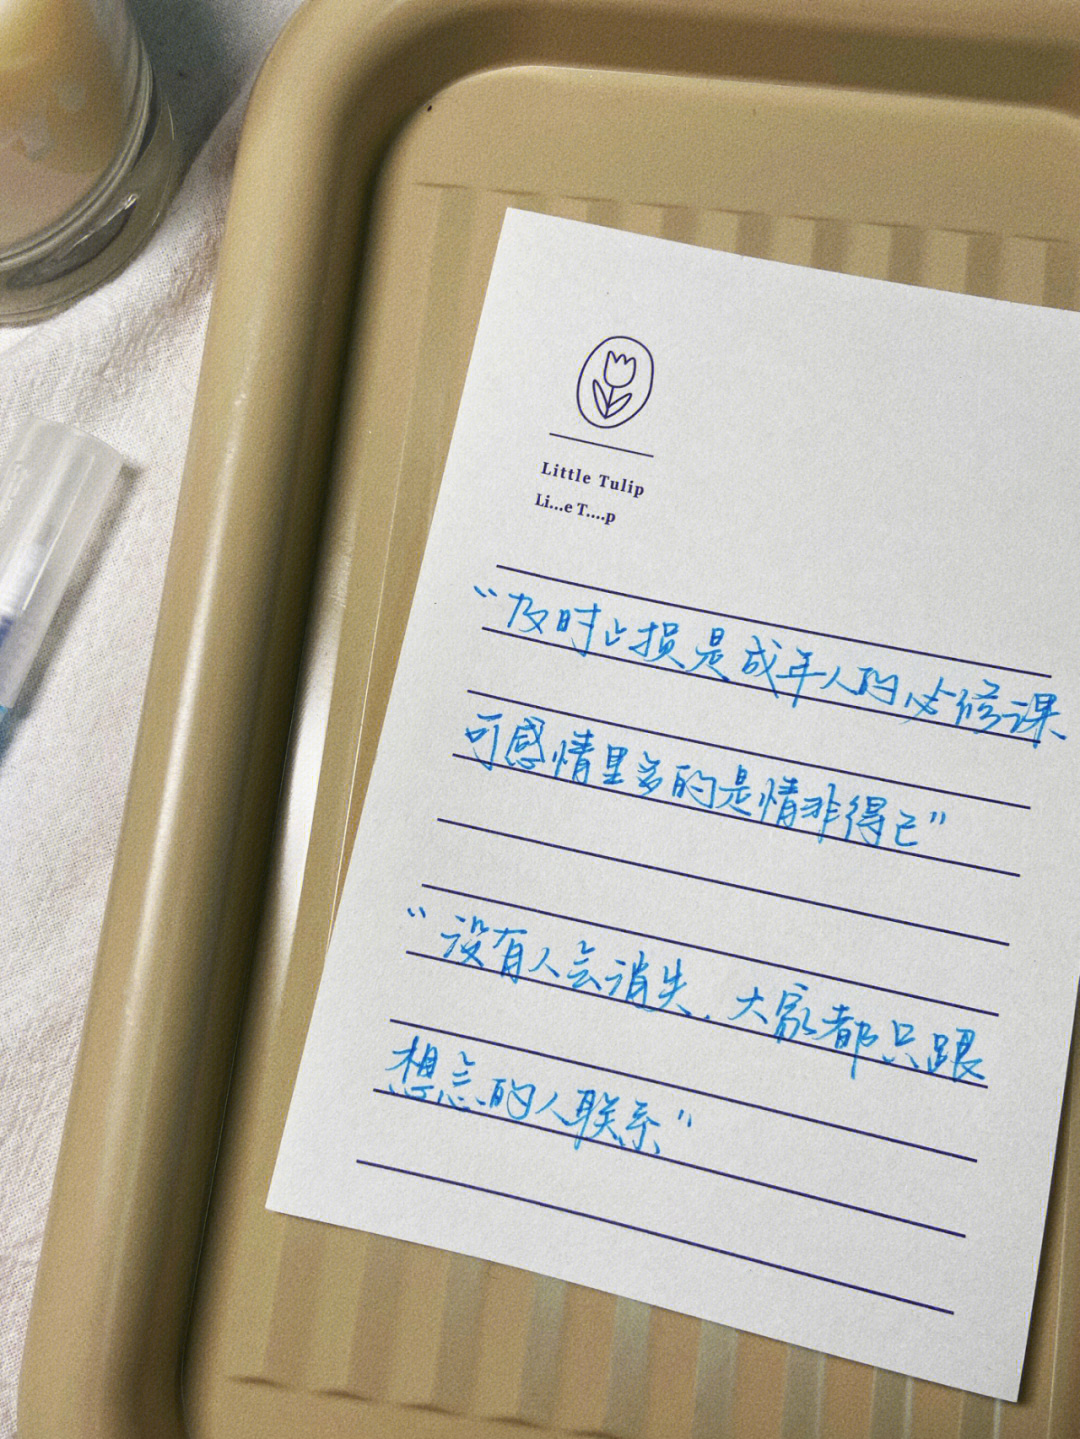 Little Tulip
Li...e T....p
“及时止损是成年人的必修课
可感情里多的是情非得已”
“没有人会消失，大家都只跟
想念的人联系”